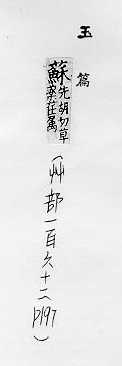 玉篇
蘇先胡切草
荏属
(艸部一百六十二 P197)